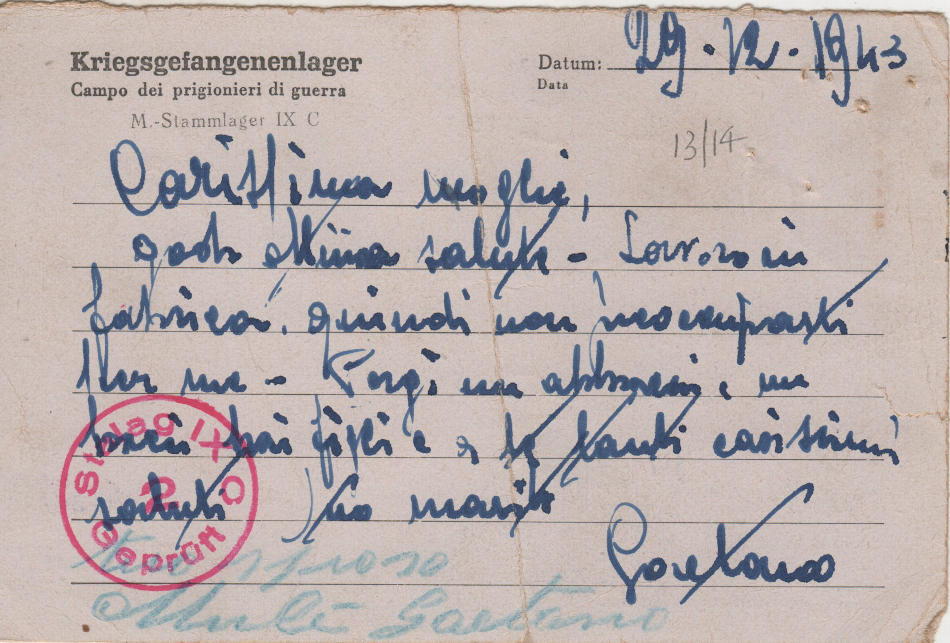 Kriegsgefangenenlager
Campo dei prigionieri di guerra
M.-Stammlager IX C
Datum: 29-12-1943
Data
13/14
Carissima moglie,
godo ottima salute - Lavoro in
fabrica, quindi non preocuparti
per me - Porgi un abbraccio e un
bacio hai figli e a te tanti carissimi
saluti tuo marito
Gaetano
Stalag IX C
2
Geprüft
tuo sposo
Mulè Gaetano